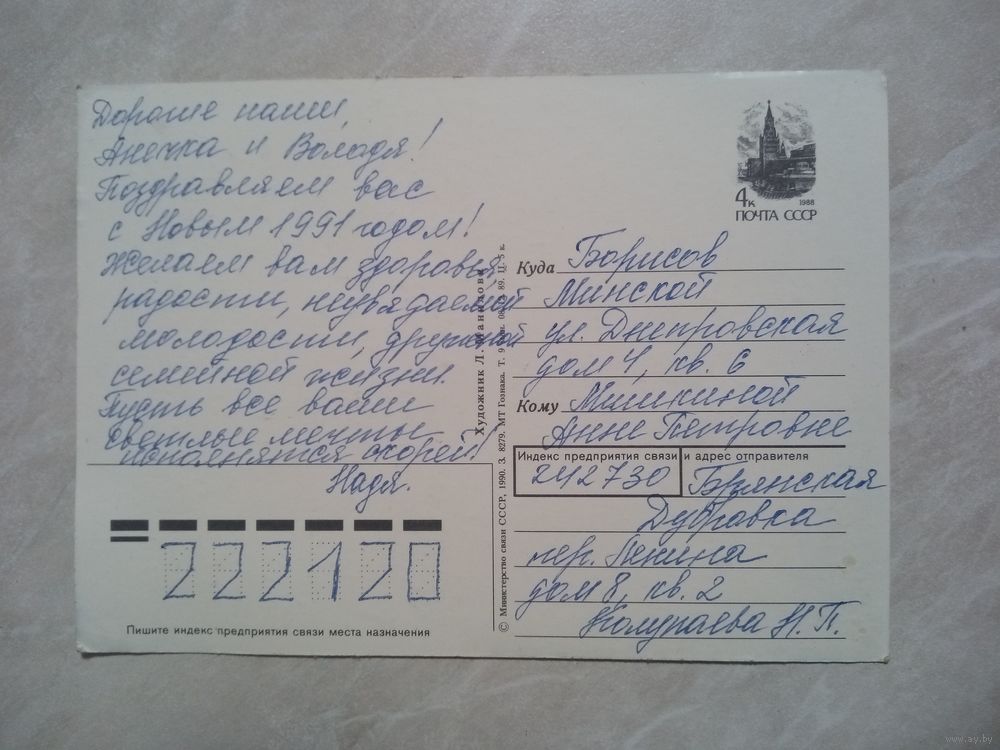 Дорогие наши,
Анечка и Володя!
Поздравляем вас
с Новым 1991 годом!
Желаем вам здоровья,
радости, неувядаемой
молодости, дружной
семейной жизни.
Пусть все ваши
светлые мечты
исполнятся скорей!
Надя.
222120
Пишите индекс предприятия связи места назначения
Художник Л.
© Министерство связи СССР, 1990. З. 8279. МТ Гознака. Т. 9 89. Ц. 5 к.
4к
1988
ПОЧТА СССР
Куда Борисов
Минской
ул. Днепровская
дом 4, кв. 6
Кому Мишкиной
Анне Петровне
Индекс предприятия связи и адрес отправителя
242730 Брянская
Дубровка
пер. Ленина
дом 8, кв. 2
Н. П.
www.ay.by